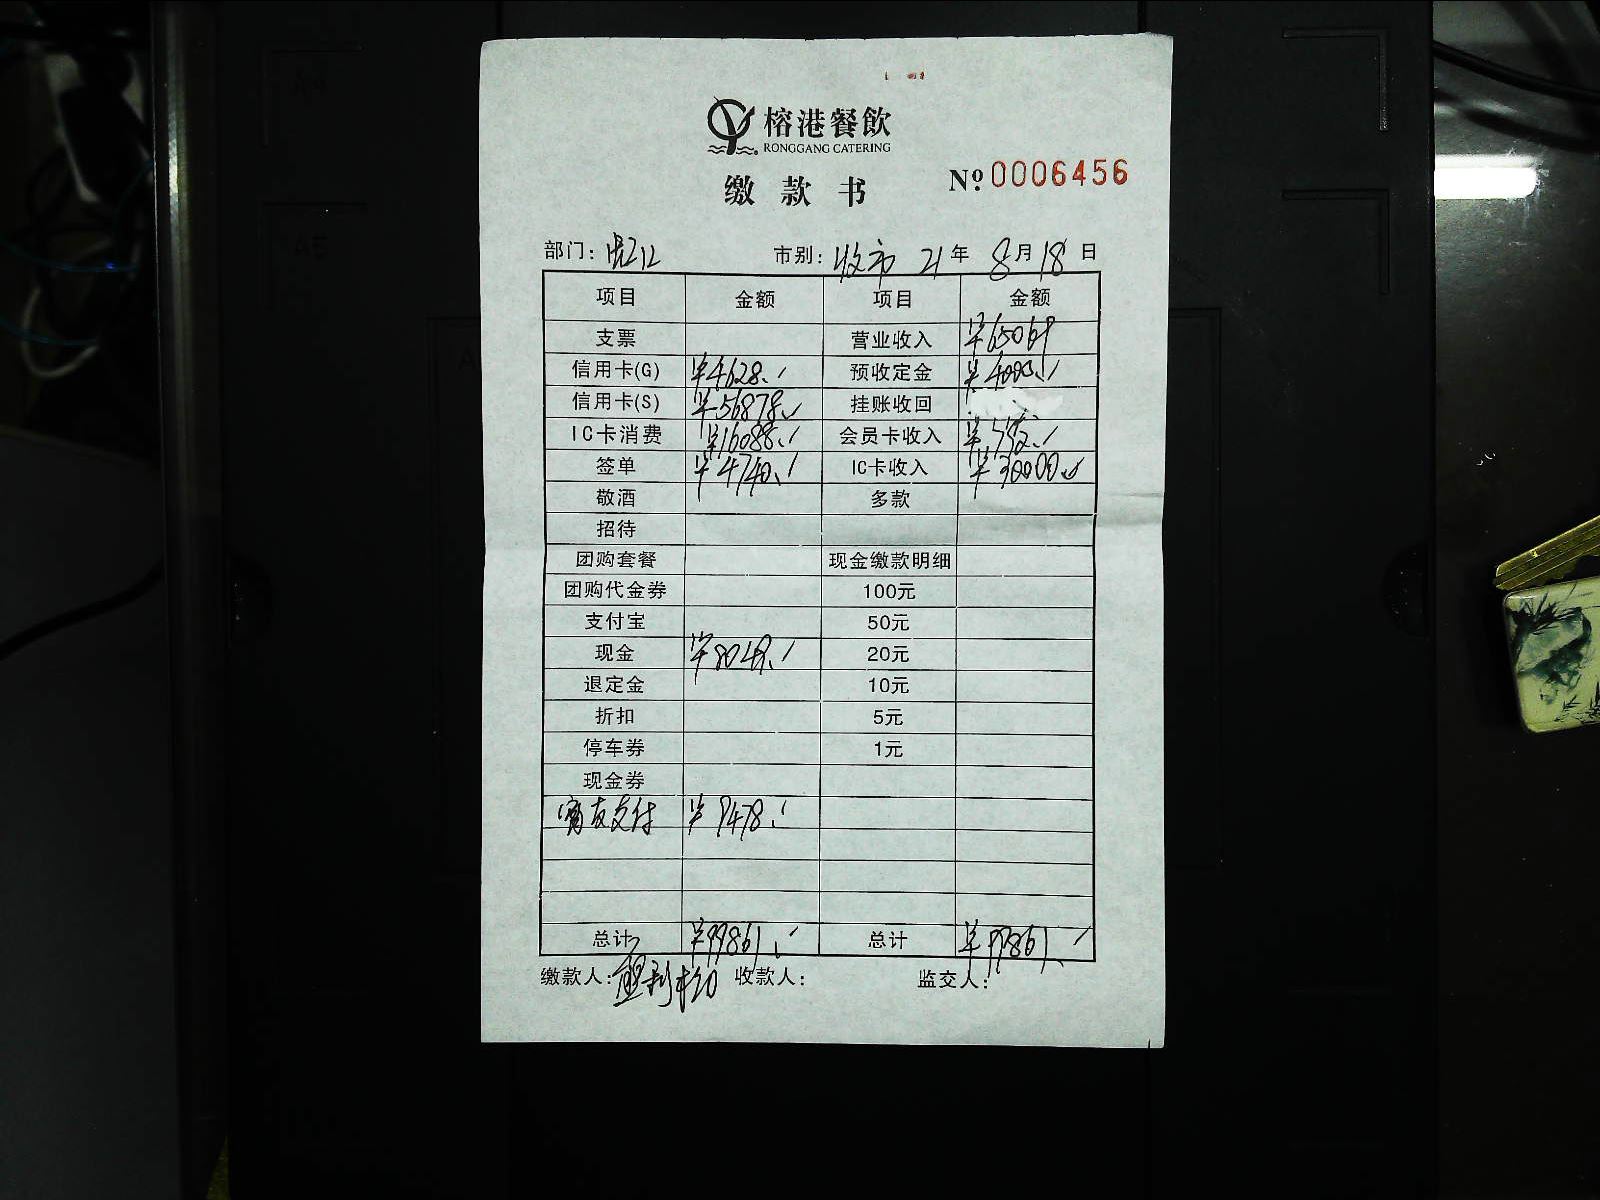 榕港餐飲
RONGGANG CATERING
缴款书
№ 0006456
部门: 市别: 收市 21年 8月18日
项目 金额 项目 金额
支票 营业收入 ¥65069
信用卡(G) ¥4628. 预收定金 ¥4000.
信用卡(S) ¥56878. 挂账收回
IC卡消费 ¥16088. 会员卡收入 ¥792.
签单 ¥4740. IC卡收入 ¥30000.
敬酒 多款
招待
团购套餐 现金缴款明细
团购代金券 100元
支付宝 50元
现金 ¥8049. 20元
退定金 10元
折扣 5元
停车券 1元
现金券
富友支付 ¥9478.
总计 ¥99861. 总计 ¥99861.
缴款人: 收款人: 监交人: